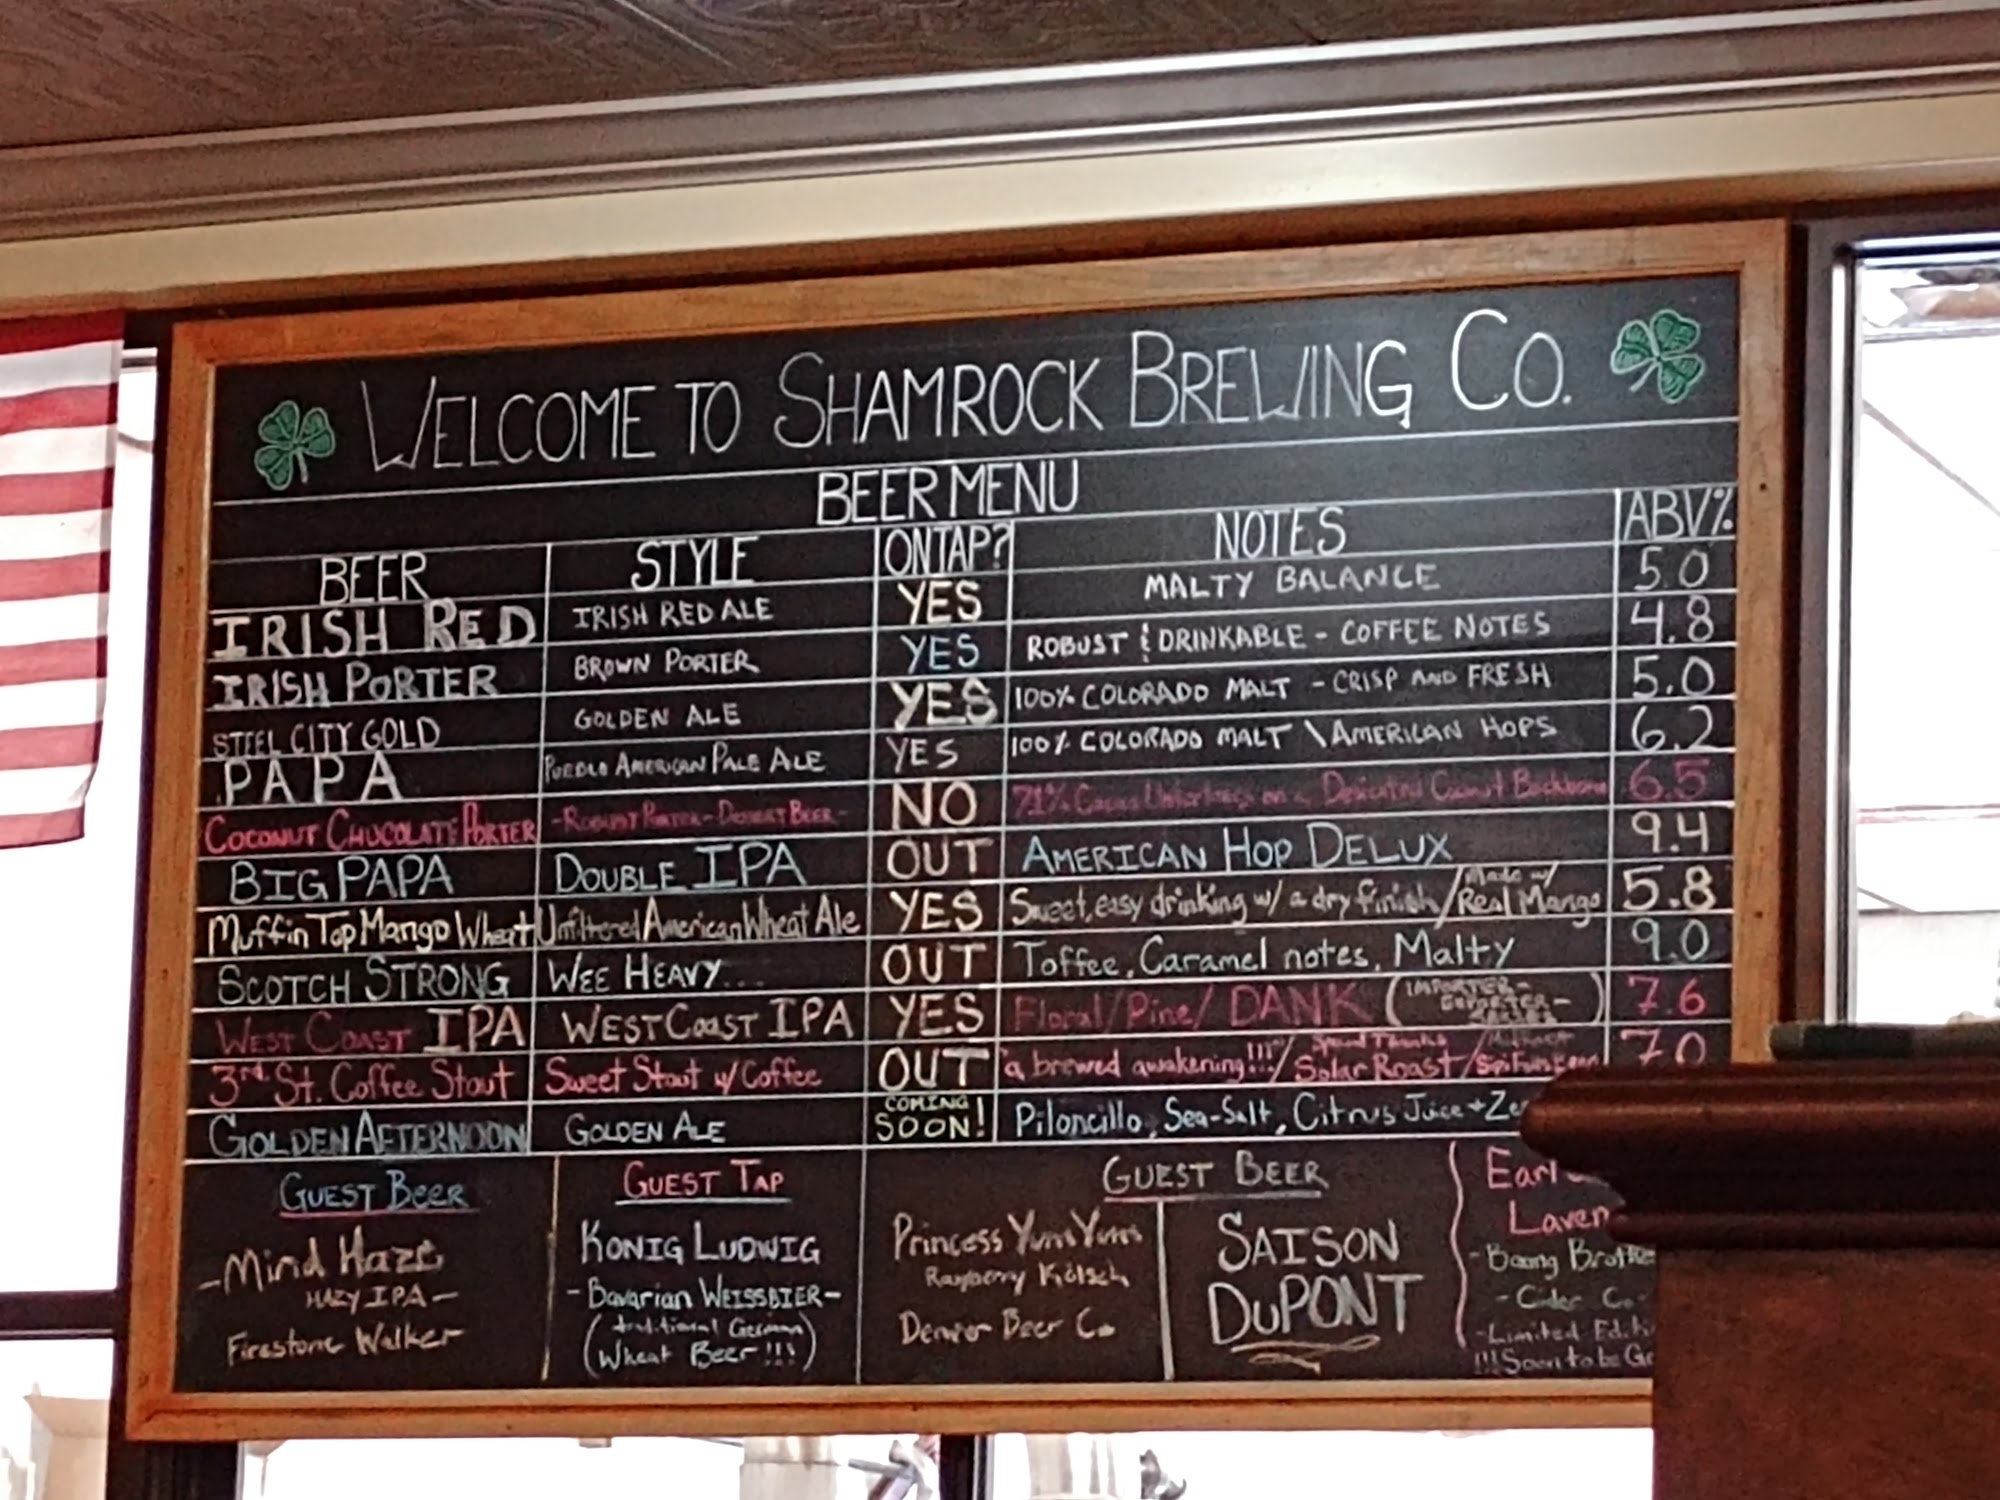 WELCOME TO SHAMROCK BREWING CO.
BEER MENU
BEER STYLE ON TAP? NOTES ABV%
IRISH RED IRISH RED ALE YES MALTY BALANCE 5.0
IRISH PORTER BROWN PORTER YES ROBUST & DRINKABLE - COFFEE NOTES 4.8
STEEL CITY GOLD GOLDEN ALE YES 100% COLORADO MALT - CRISP AND FRESH 5.0
PAPA PUEBLO AMERICAN PALE ALE YES 100% COLORADO MALT \ AMERICAN HOPS 6.2
COCONUT CHOCOLATE PORTER -ROBUST PORTER-DESSERT BEER- NO 71% Cacao on a Coconut Backbone 6.5
BIG PAPA DOUBLE IPA OUT AMERICAN HOP DELUX 9.4
Muffin Top Mango Wheat Unfiltered American Wheat Ale YES Sweet, easy drinking w/ a dry finish / Made w/ Real Mango 5.8
SCOTCH STRONG WEE HEAVY... OUT Toffee, Caramel notes, Malty 9.0
WEST COAST IPA WEST COAST IPA YES Floral / Pine / DANK (IMPORTER- EXPORTER-) 7.6
3rd St. Coffee Stout Sweet Stout w/ Coffee OUT a brewed awakening!!! / Special Thanks Solar Roast / 7.0
GOLDEN AFTERNOON GOLDEN ALE COMING SOON! Piloncillo, Sea-Salt, Citrus Juice + Ze
GUEST BEER
-Mind Haze
HAZY IPA-
Firestone Walker
GUEST TAP
KONIG LUDWIG
-Bavarian WEISSBIER-
(traditional German
Wheat Beer!!!)
GUEST BEER
Princess Yum Yum
Raspberry Kölsch
Denver Beer Co
SAISON
DUPONT
Earl
Laven
-Boxing Brothe
-Cider Co-
-Limited Edit
!!!Soon to be Go